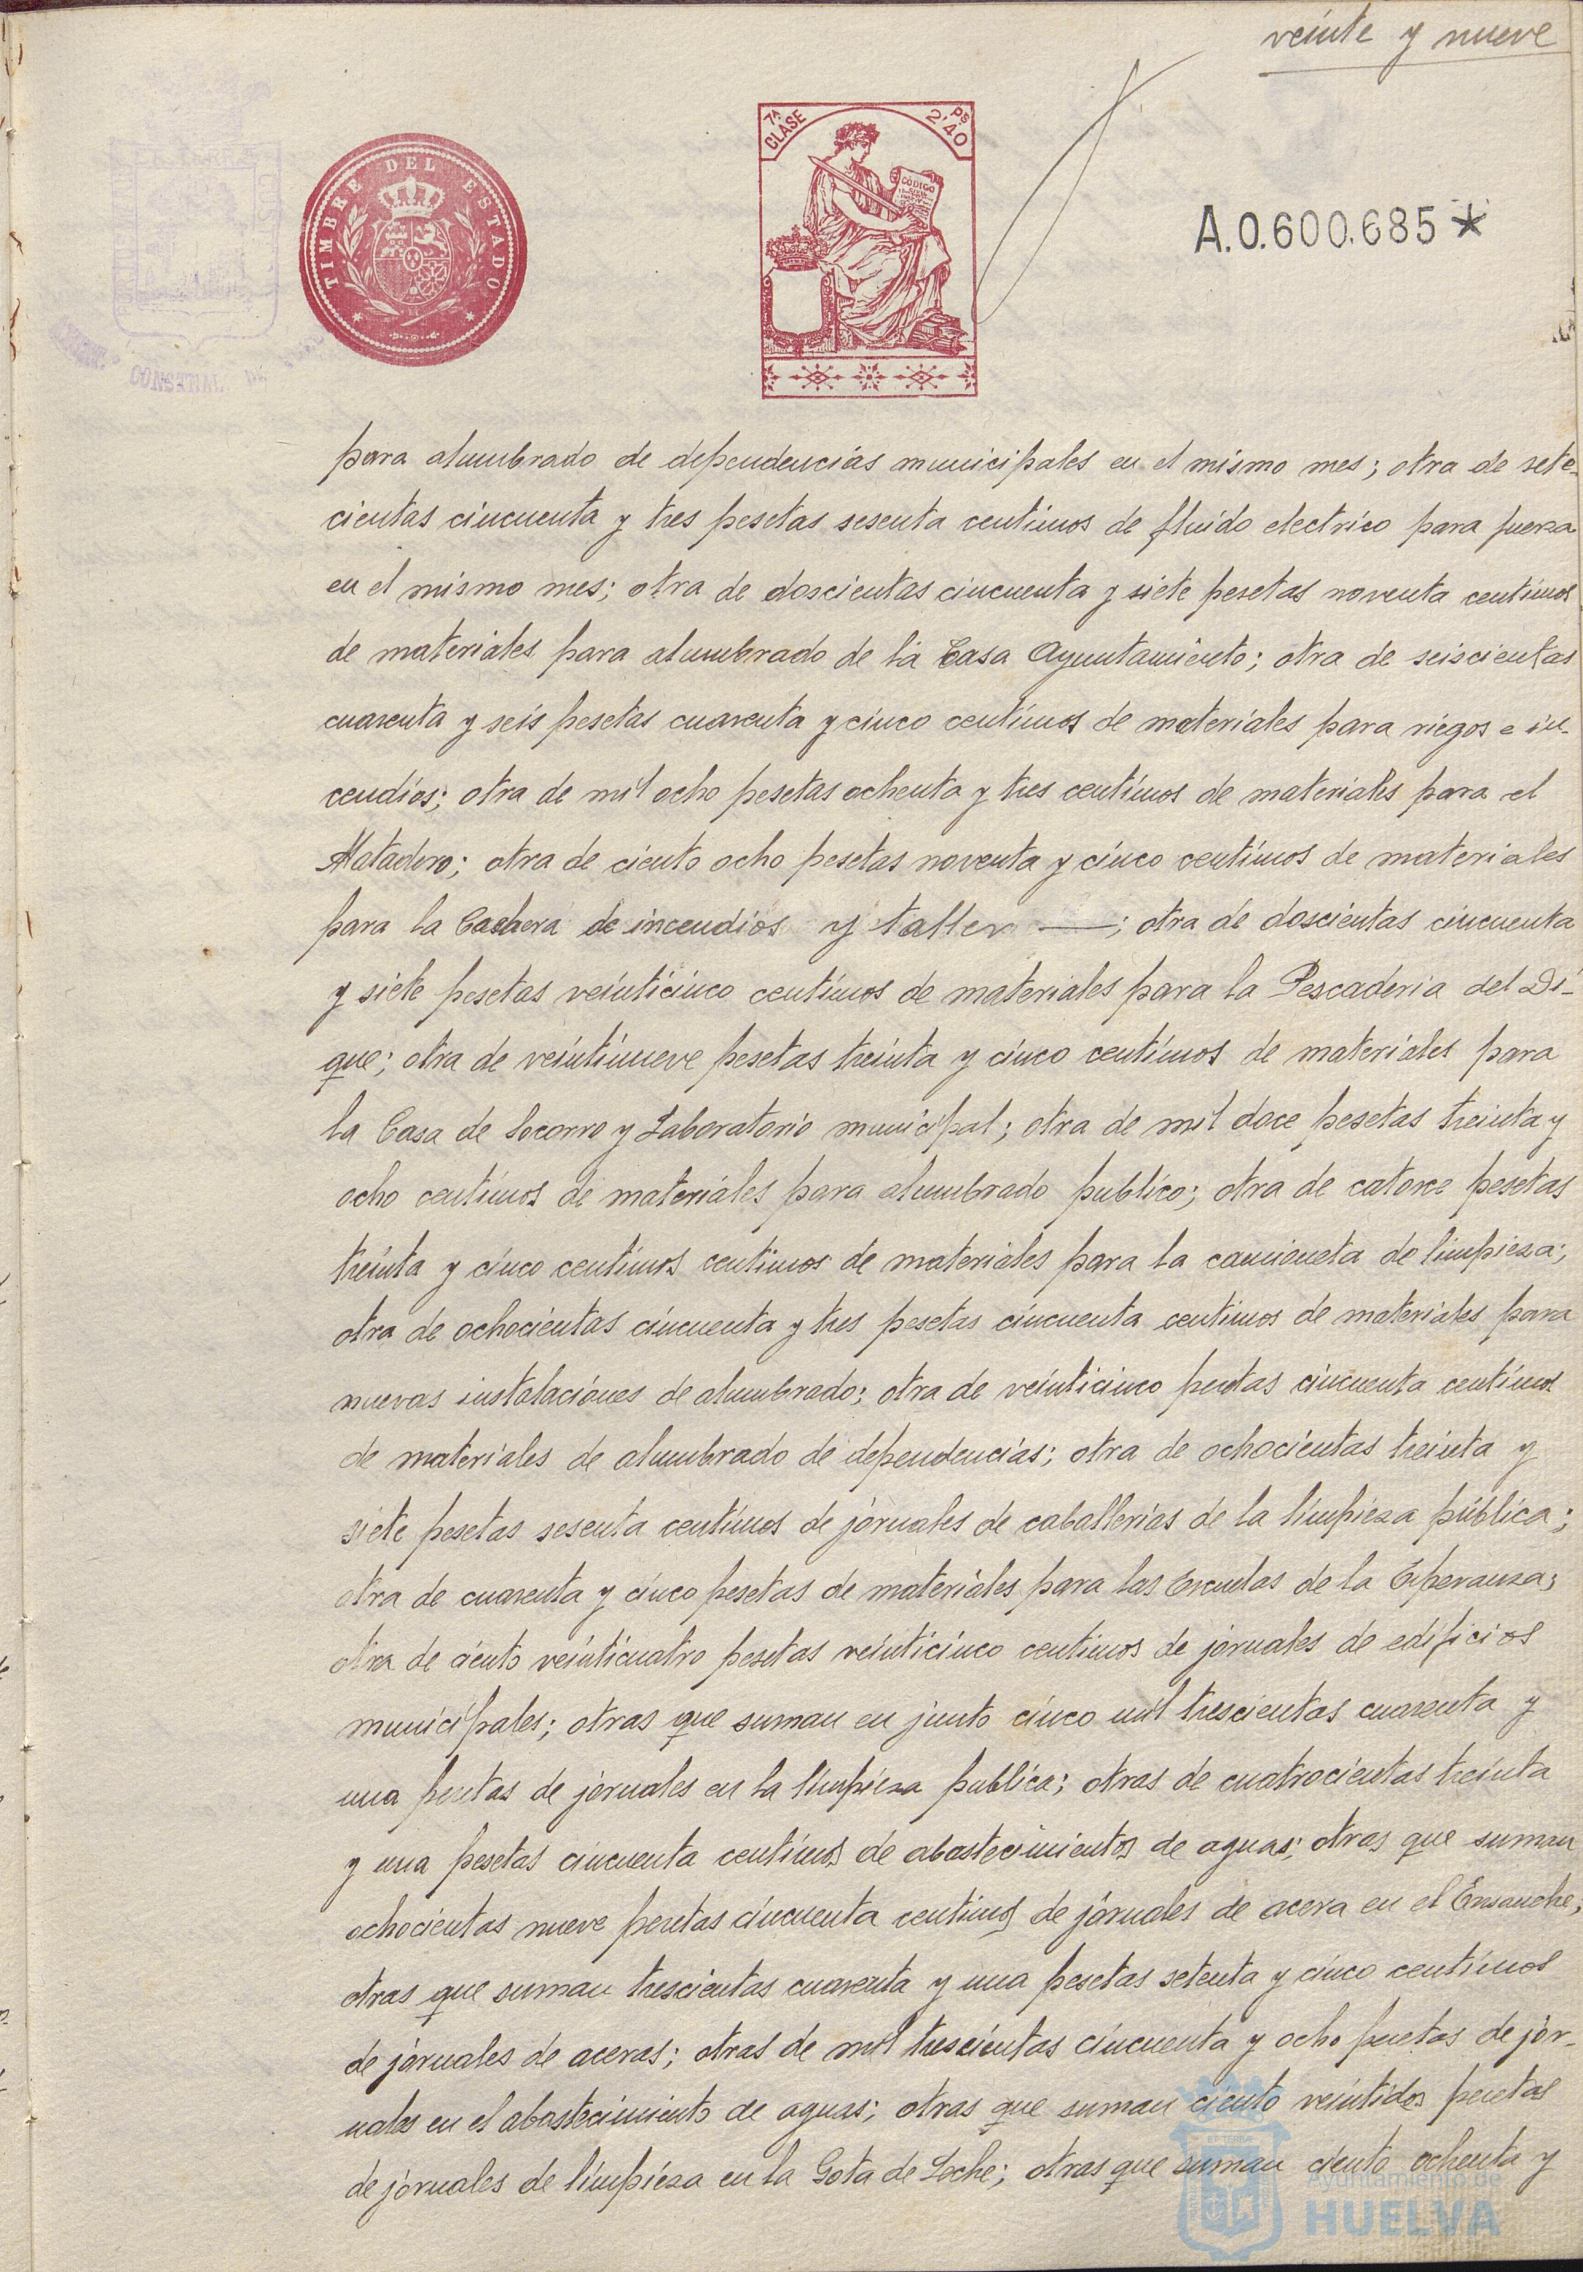 veinte y nueve
TIMBRE DEL ESTADO
7ª CLASE
Ps 2'40
CODIGO
A.0.600.685*
CONSTIL
para alumbrado de dependencias municipales en el mismo mes; otra de sete-
cientas cincuenta y tres pesetas sesenta centimos de fluido electrico para fuerza
en el mismo mes; otra de doscientas cincuenta y siete pesetas noventa centimos
de materiales para alumbrado de la Casa Ayuntamiento; otra de seiscientas
cuarenta y seis pesetas cuarenta y cinco centimos de materiales para riegos e in-
cendios; otra de mil ocho pesetas ochenta y tres centimos de materiales para el
Matadero; otra de ciento ocho pesetas noventa y cinco centimos de materiales
para la Cochera de incendios y taller ——; otra de doscientas cincuenta
y siete pesetas veinticinco centimos de materiales para la Pescaderia del Di-
que; otra de veintinueve pesetas treinta y cinco centimos de materiales para
la Casa de Socorro y Laboratorio municipal; otra de mil doce pesetas treinta y
ocho centimos de materiales para alumbrado publico; otra de catorce pesetas
treinta y cinco centimos centimos de materiales para la camioneta de limpieza;
otra de ochocientas cincuenta y tres pesetas cincuenta centimos de materiales para
nuevas instalaciones de alumbrado; otra de veinticinco pesetas cincuenta centimos
de materiales de alumbrado de dependencias; otra de ochocientas treinta y
siete pesetas sesenta centimos de jornales de caballerias de la limpieza pública;
otra de cuarenta y cinco pesetas de materiales para las Escuelas de la Esperanza;
otra de ciento veinticuatro pesetas veinticinco centimos de jornales de edificios
municipales; otras que suman en junto cinco mil trescientas cuarenta y
una pesetas de jornales en la limpieza publica; otras de cuatrocientas treinta
y una pesetas cincuenta centimos de abastecimientos de aguas; otras que suman
ochocientas nueve pesetas cincuenta centimos de jornales de acera en el Ensanche;
otras que suman trescientas cuarenta y una pesetas setenta y cinco centimos
de jornales de aceras; otras de mil trescientas cincuenta y ocho pesetas de jor-
nales en el abastecimiento de aguas; otras que suman ciento veintidos pesetas
de jornales de limpieza en la Gota de Leche; otras que suman ciento ochenta y
Ayuntamiento de
HUELVA